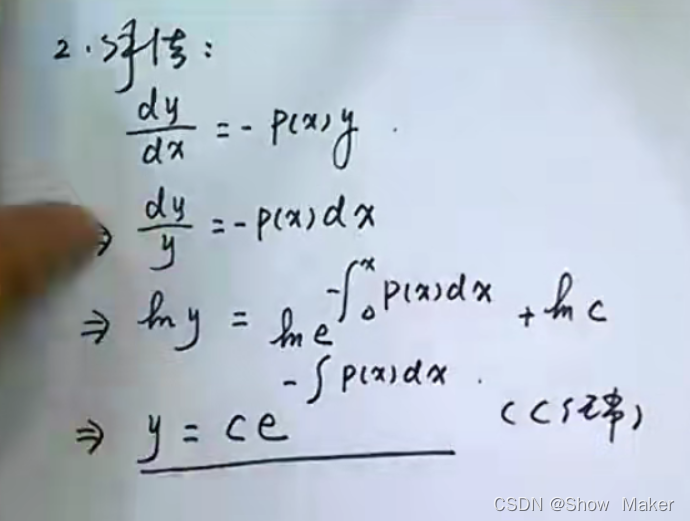 2. 解法:
dy/dx = - P(x) y .
⇒ dy/y = - P(x) dx
⇒ ln y = ln e^{-∫_0^x P(x) dx} + ln c
⇒ y = c e^{-∫ P(x) dx} . (C 任常)
CSDN @Show Maker